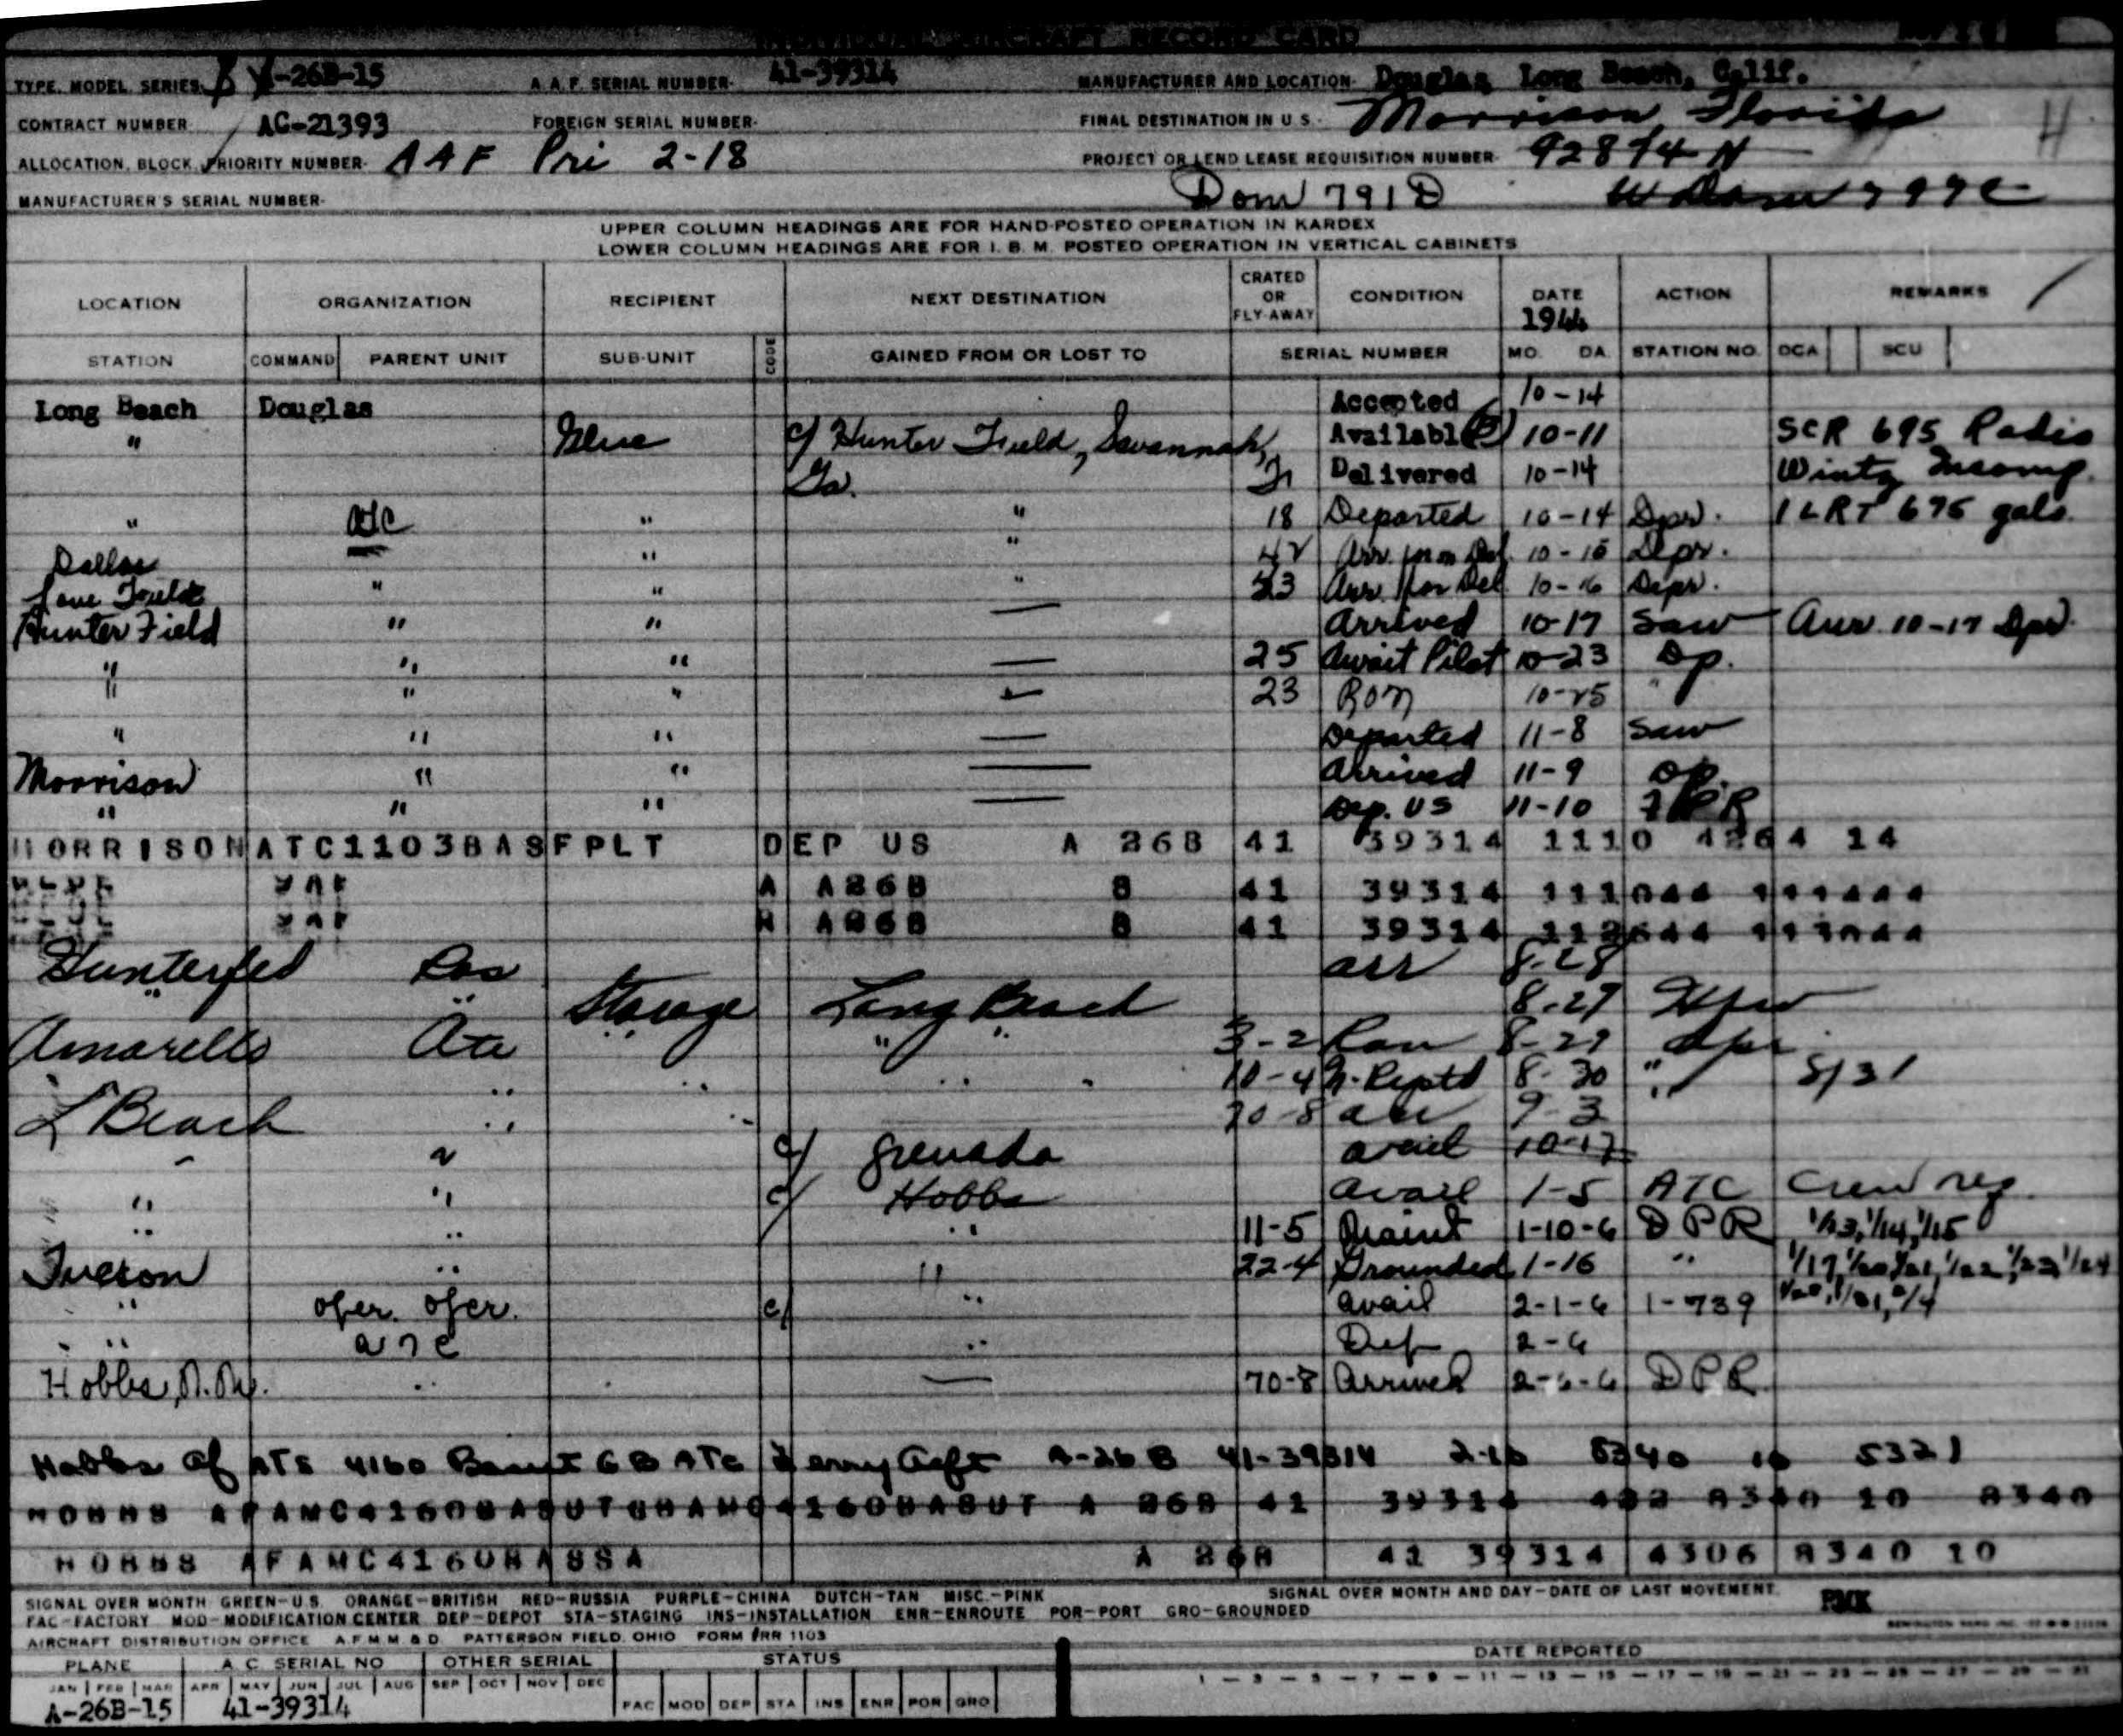 INDIVIDUAL AIRCRAFT RECORD CARD
TYPE, MODEL, SERIES -26B-15 A.A.F. SERIAL NUMBER- 41-39314 MANUFACTURER AND LOCATION- Douglas Long Beach, Calif.
CONTRACT NUMBER AC-21393 FOREIGN SERIAL NUMBER- FINAL DESTINATION IN U.S.- Morrison Florida H
ALLOCATION, BLOCK, PRIORITY NUMBER- AAF Pri 2-18 PROJECT OR LEND LEASE REQUISITION NUMBER- 92894-N
MANUFACTURER'S SERIAL NUMBER- Dom 791D
UPPER COLUMN HEADINGS ARE FOR HAND-POSTED OPERATION IN KARDEX
LOWER COLUMN HEADINGS ARE FOR I. B. M. POSTED OPERATION IN VERTICAL CABINETS
LOCATION ORGANIZATION RECIPIENT NEXT DESTINATION CRATED OR FLY-AWAY CONDITION DATE 1944 ACTION REMARKS
STATION COMMAND PARENT UNIT SUB-UNIT CODE GAINED FROM OR LOST TO SERIAL NUMBER MO. DA. STATION NO. OCA SCU
Long Beach Douglas Accepted 10-14
" c/ Hunter Field, Savannah, Available 10-11 SCR 695 Radio
Ga. Delivered 10-14
" ATC " " 18 Departed 10-14 Dpr. 1 LRT 675 gals.
Dallas " " 10-15 Dpr.
Love Field " " " 23 Arr. Non Del 10-16 Dpr.
Hunter Field " " — Arrived 10-17 Saw Arr. 10-17 Dpr.
" " " — 25 Await Pilot 10-23 Dp.
" " " — 23 RON 10-25 "
" " " — Departed 11-8 Saw
Morrison " " — Arrived 11-9 DP.
" " " — Dep. US 11-10
MORRISON ATC1103BASFPLT DEP US A 26B 41 39314 1110 4264 14
A A26B 8 41 39314 111044
A26B 8 41 39314 112644 113044
Hunterfed arr 8-28
" " Storage Long Beach 8-29
Amarello " " " 3-2 Ron 8-29 dpr
" " " 10-4 N. Reptd 8-30 " 8/31
L Beach " " 70-8 arr 9-3 "
" " c/ Grenada avail 10-17
" " c/ Hobbs avail 1-5 ATC Crew reg.
" " " 11-5 Maint 1-10-6 DPR 1/13, 1/14, 1/15
Tucson " " 22-4 Grounded 1-16 " 1/17 1/20 1/21, 1/22, 1/23, 1/24
" oper. oper. c/ " avail 2-1-6 1-739
" ATC " Dep 2-6
Hobbs, N.M. " — 70-8 Arrived 2-6-6 DPR
Hobbs Af ATS 4160 Basut GB ATC Ferry Acft A-26B 41-39314 8340 10 5321
HOBBS AFAMC4160BASUTGBAMC4160BASUT A 26B 41 39314 422 8340 10 8340
HOBBS AFAMC4160BASSA A 26B 41 39314 4306 8340 10
SIGNAL OVER MONTH GREEN-U.S. ORANGE-BRITISH RED-RUSSIA PURPLE-CHINA DUTCH-TAN MISC.-PINK SIGNAL OVER MONTH AND DAY-DATE OF LAST MOVEMENT.
FAC-FACTORY MOD-MODIFICATION CENTER DEP-DEPOT STA-STAGING INS-INSTALLATION ENR-ENROUTE POR-PORT GRO-GROUNDED
AIRCRAFT DISTRIBUTION OFFICE A.F.M.M.&D. PATTERSON FIELD, OHIO FORM #RR 1103
PLANE A.C. SERIAL NO OTHER SERIAL STATUS DATE REPORTED
JAN FEB MAR APR MAY JUN JUL AUG SEP OCT NOV DEC 1 - 3 - 5 - 7 - 9 - 11 - 13 - 15 - 17 - 19 - 21 - 23 - 25 - 27 - 29 - 31
A-26B-15 41-39314 FAC MOD DEP STA INS ENR POR GRO